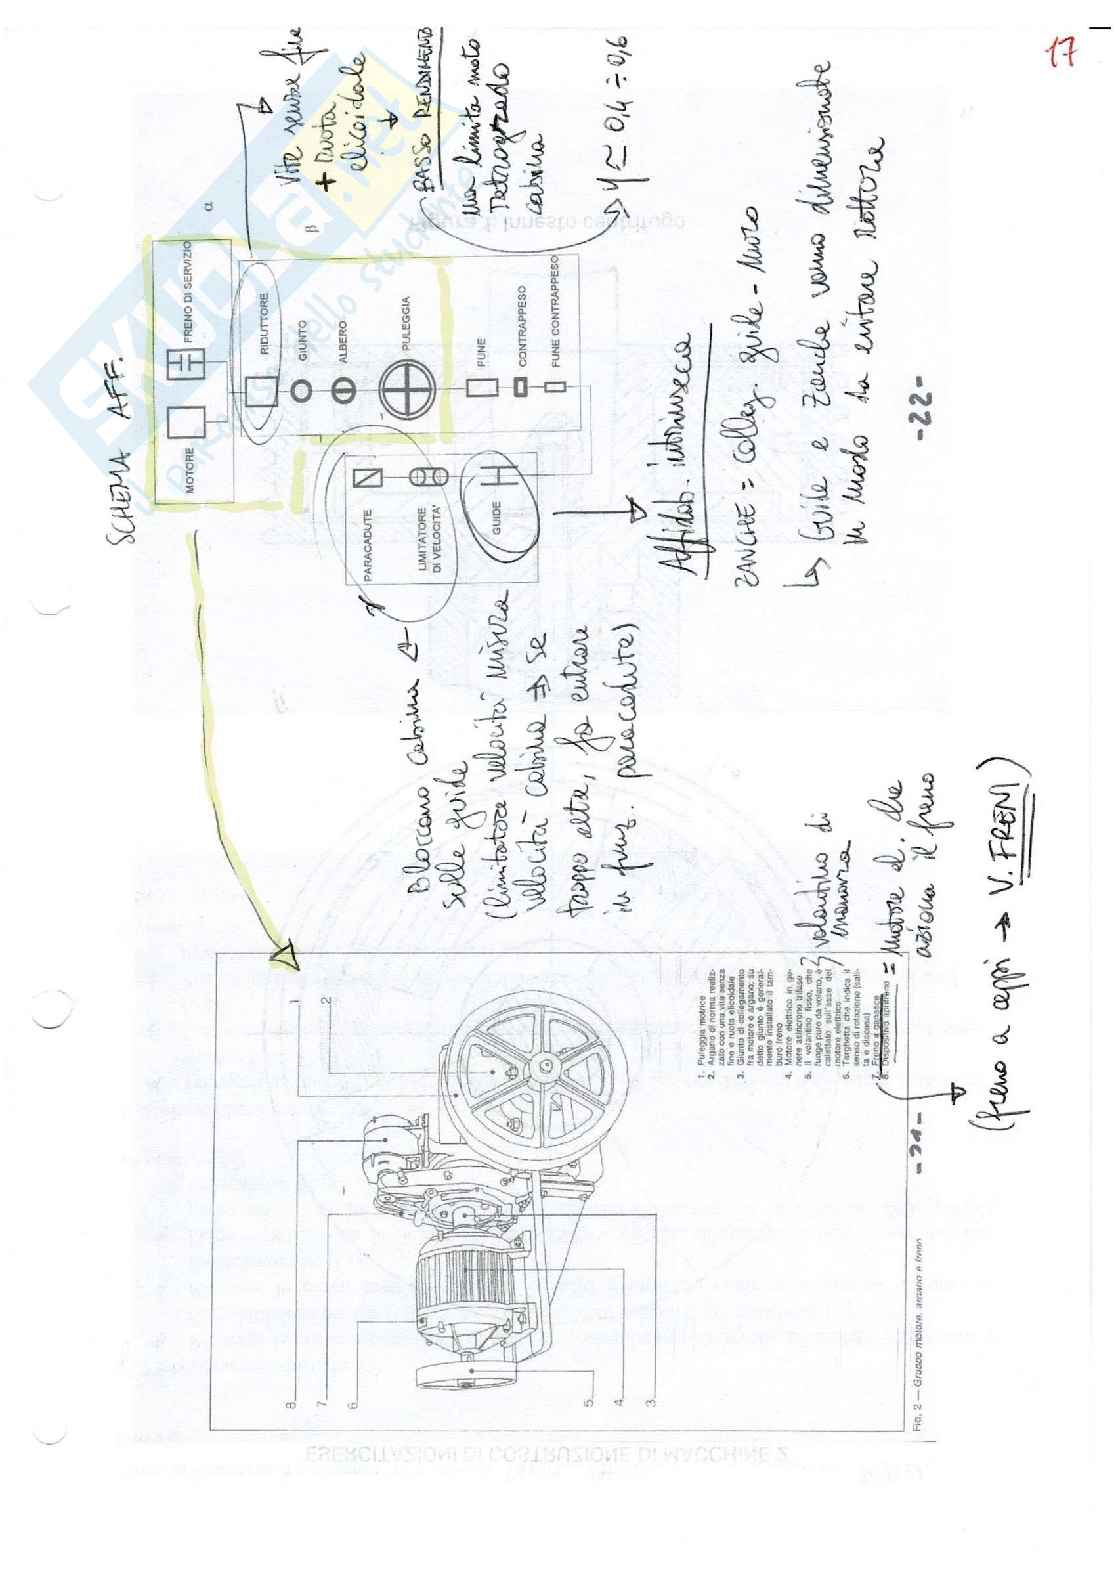 17
SCHEMA AFF.
MOTORE
FRENO DI SERVIZIO
α
RIDUTTORE
β
GIUNTO
ALBERO
PULEGGIA
FUNE
CONTRAPPESO
FUNE CONTRAPPESO
PARACADUTE
LIMITATORE
DI VELOCITA'
GUIDE
Vite senza fine
+ ruota
elicoidale
BASSO RENDIMENTO
ma limita moto
retrogrado
cabina
η ≃ 0,4 ÷ 0,6
Affidab. intrinseca
ZANCHE = colleg. guide - muro
↳ Guide e zanche vanno dimensionate
in modo da evitare rotture
-22-
Bloccano cabina
sulle guide
(limitatore velocità misura
velocità cabina ⇒ se
troppo alta, fa entrare
in funz. paracadute)
1
2
8
7
6
5
4
3
1. Puleggia motrice
2. Argano di norma realiz-
zato con una vite senza
fine e ruota elicoidale
3. Giunto di collegamento
fra motore e argano; su
detto giunto è general-
mente installato il tam-
buro freno
4. Motore elettrico in ge-
nere asincrono trifase
5. Il volantino fisso, che
funge pure da volano, è
calettato sull'asse del
motore elettrico
6. Targhetta che indica il
senso di rotazione (sali-
ta e discesa)
7. Freno a ganasce
8. Dispositivo aprifreno
volantino di
manovra
= motore el. che
aziona il freno
(freno a ceppi → V. FRENI)
Fig. 2 — Gruppo motore, argano e freno
-21-
SKUOLA.net
Figura 1: Innesto centrifugo
ESERCITAZIONI DI COSTRUZIONE DI MACCHINE 2